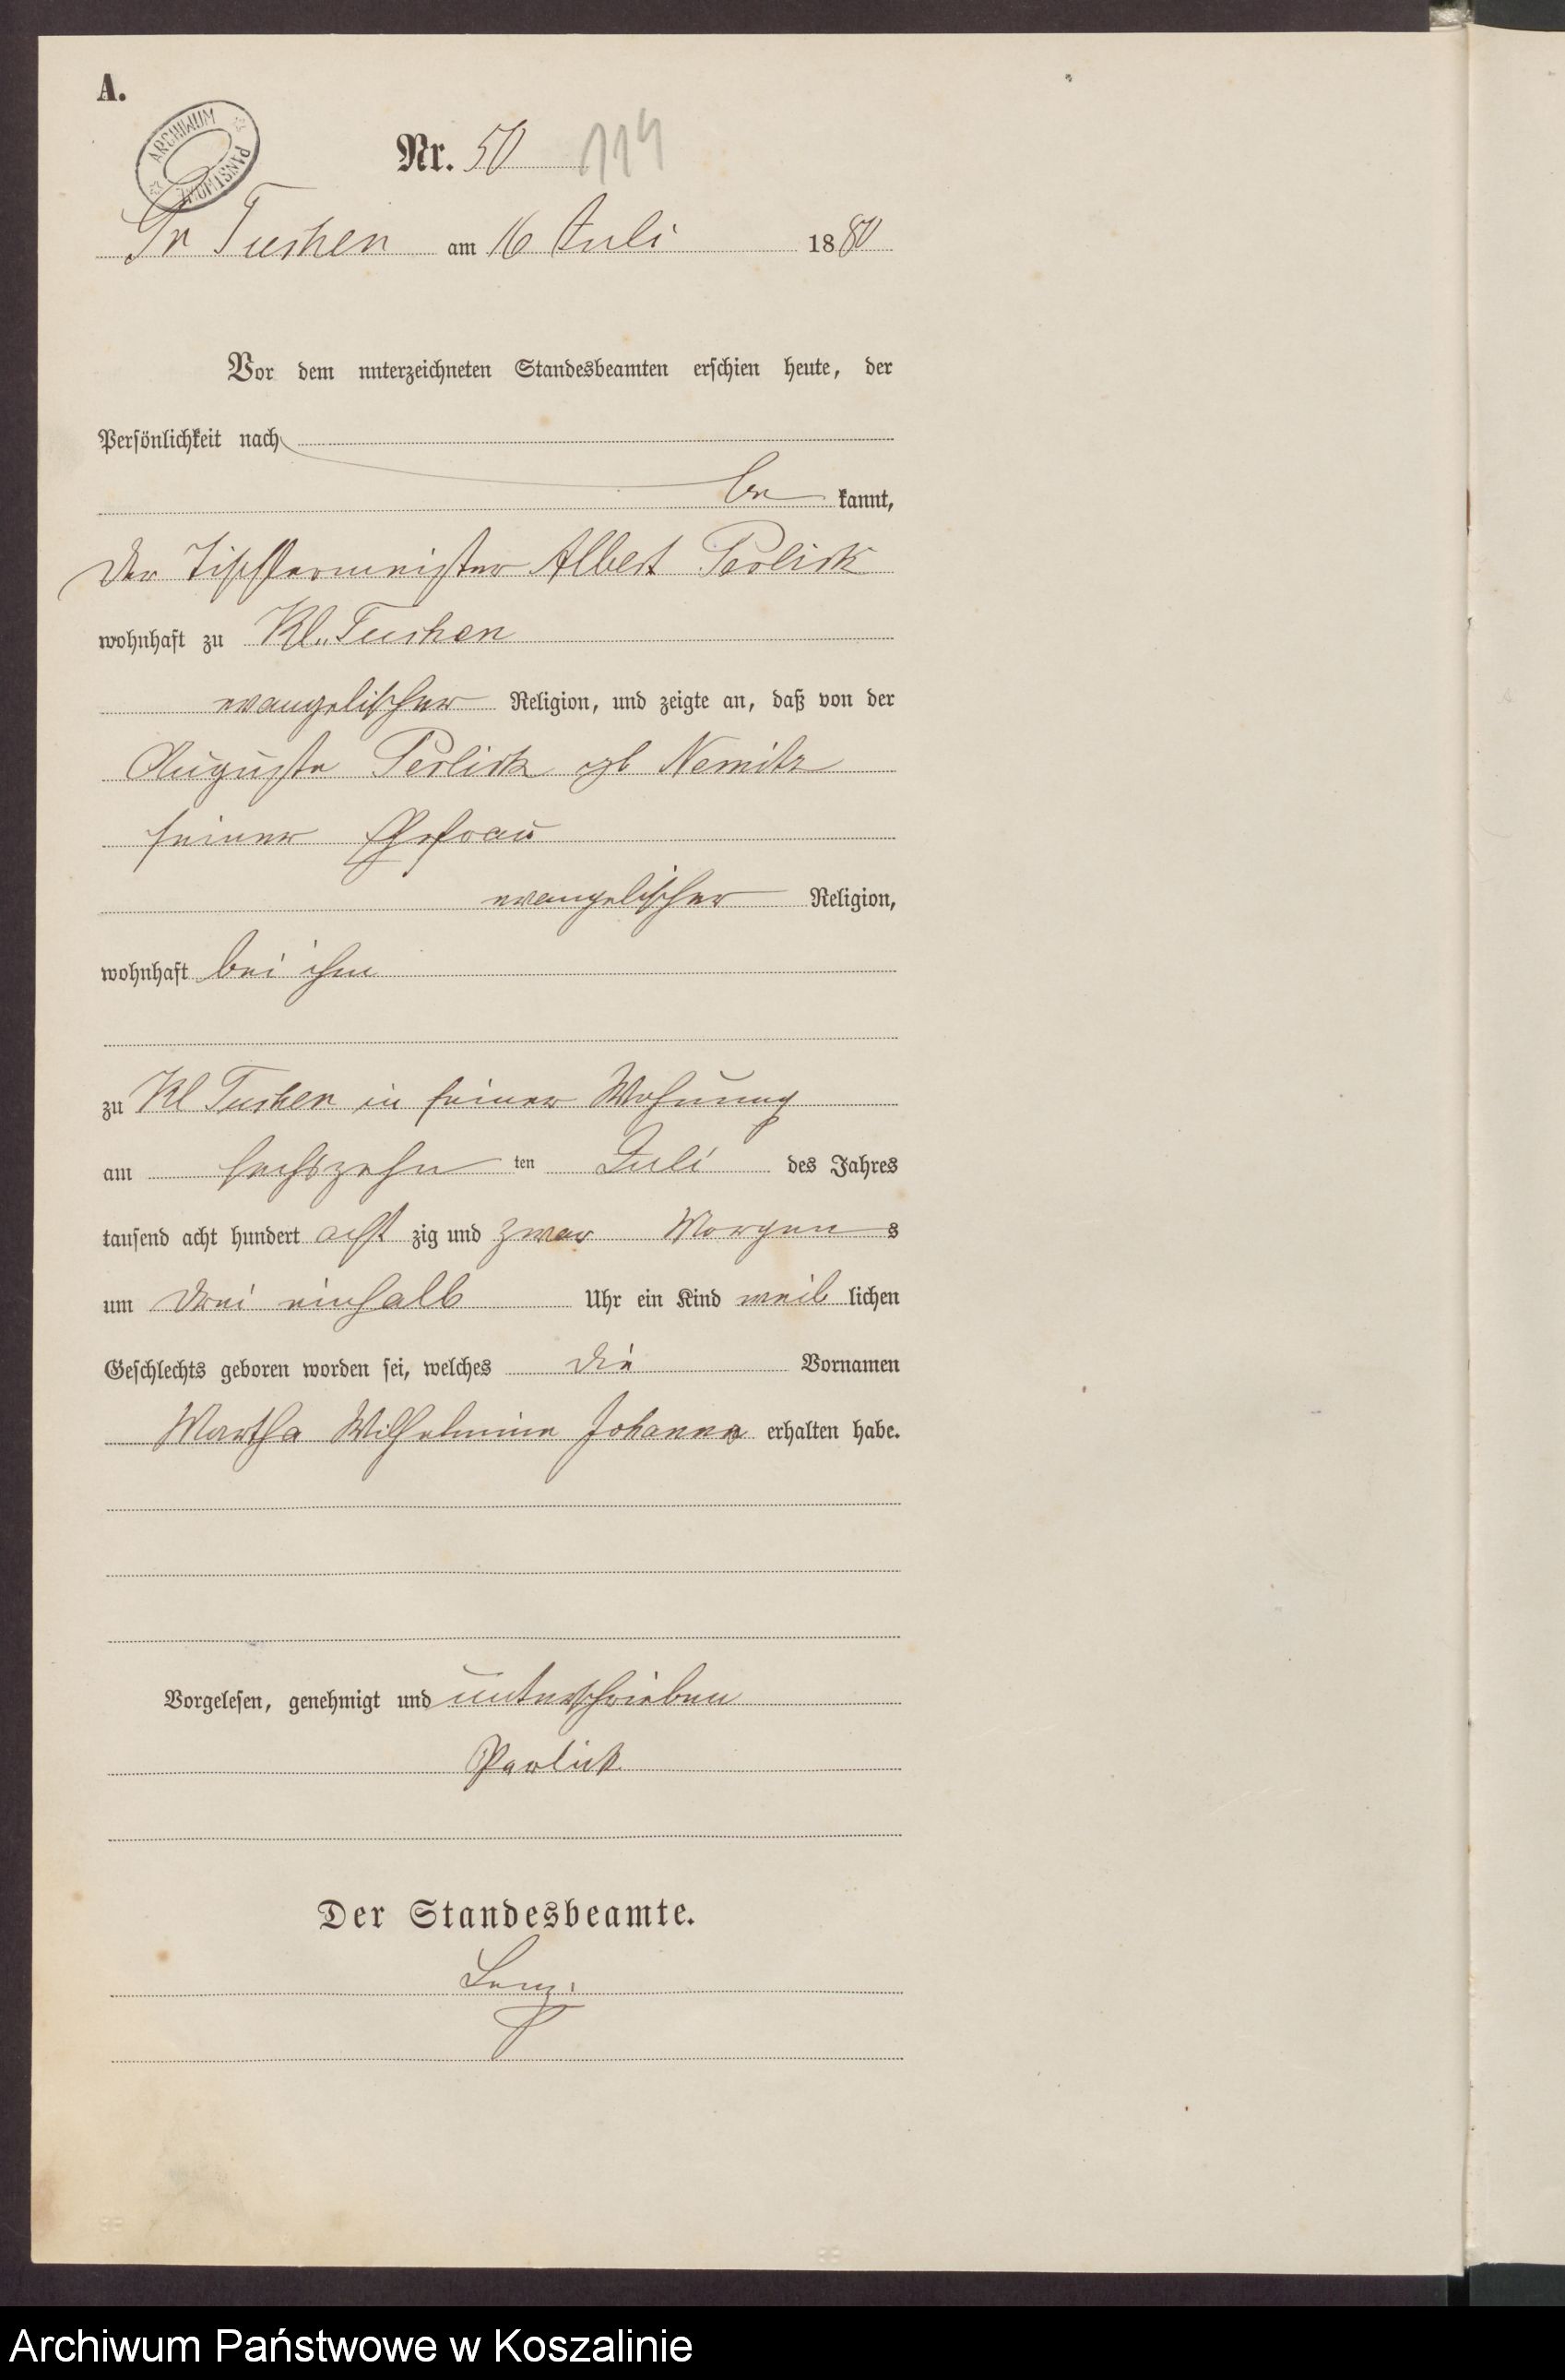 A.
ARCHIWUM PAŃSTWOWE
Nr. 50 114
Gr Tuchen am 16 Juli 1880
Vor dem unterzeichneten Standesbeamten erschien heute, der
Persönlichkeit nach
be kannt,
der Tischlermeister Albert Perlick
wohnhaft zu Kl. Tuchen
evangelischer Religion, und zeigte an, daß von der
Auguste Perlick gb Nemitz
seiner Ehefrau
evangelischer Religion,
wohnhaft bei ihm
zu Kl Tuchen in seiner Wohnung
am sechszehn ten Juli des Jahres
tausend acht hundert acht zig und zwar Morgens
um drei einhalb Uhr ein Kind weib lichen
Geschlechts geboren worden sei, welches die Vornamen
Martha Wilhelmine Johanna erhalten habe.
Vorgelesen, genehmigt und unterschrieben
Perlick
Der Standesbeamte.
Archiwum Państwowe w Koszalinie